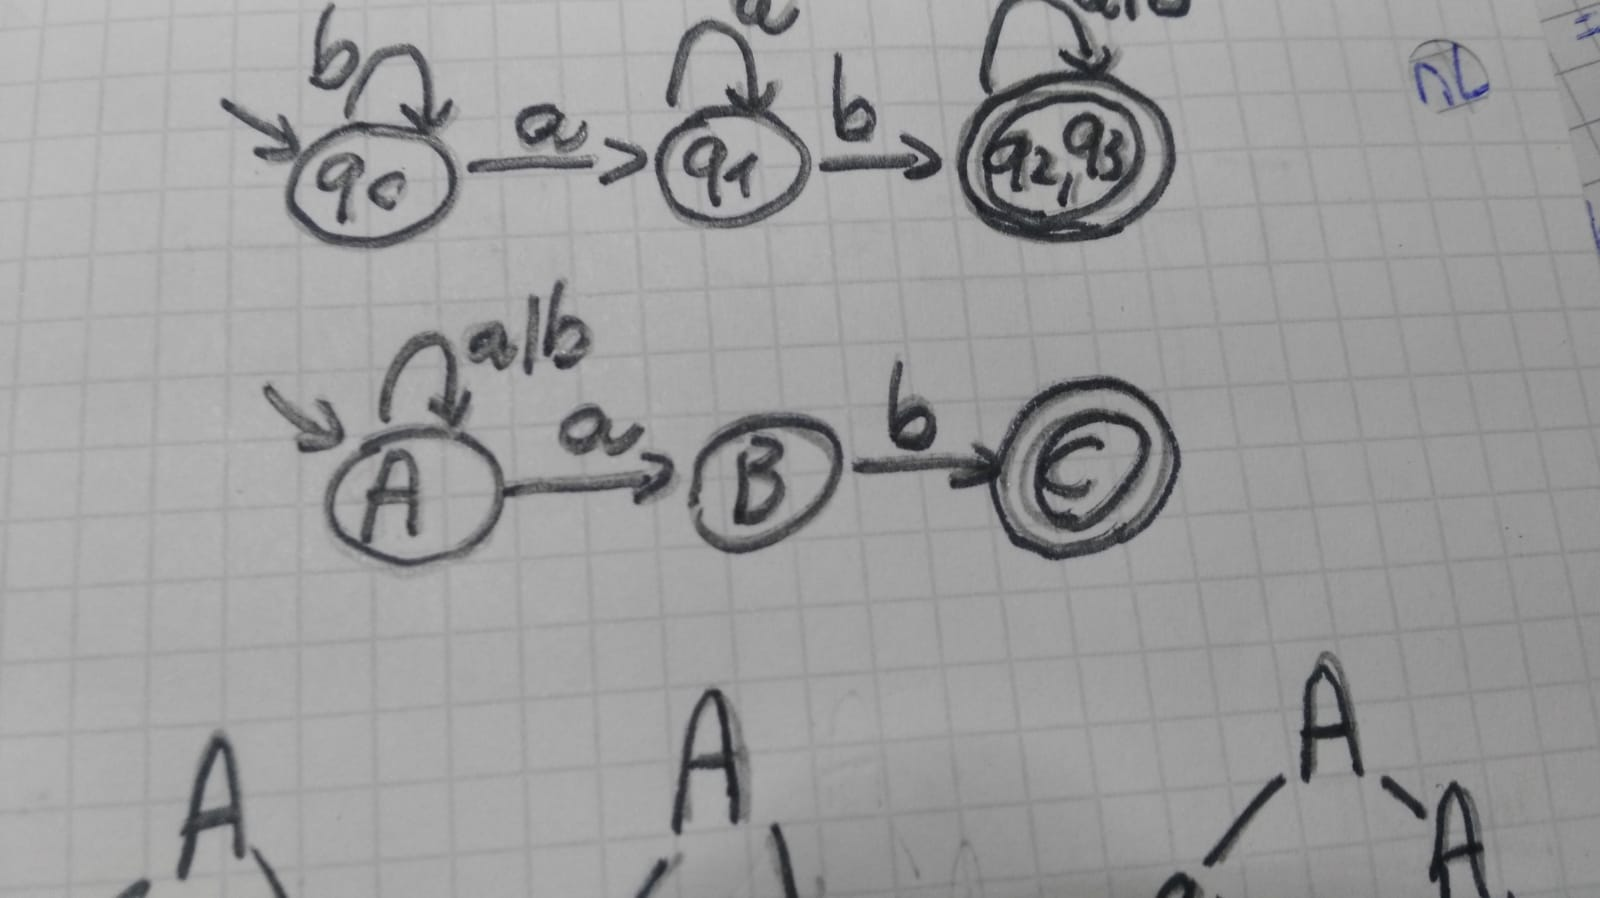 b a a|b
q0 a q1 b q2,q3
a|b
A a B b C
A A A
A